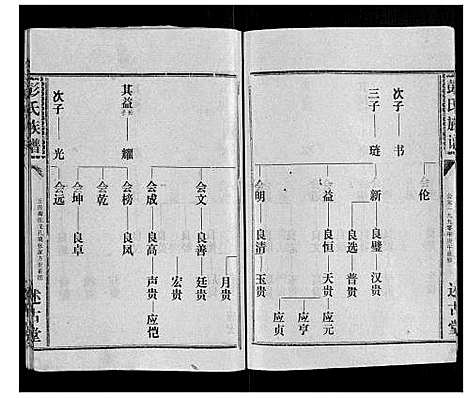 彭氏族谱
述古堂
次子 书
会伦
三子 琏
新 良璧 汉贵
良选 普贵
会益 良恒 天贵 应元
应亨
应贞
会朗 良清 玉贵
其益长子 耀
会文 良善 廷贵
月贵
宏贵
会成 良高 声贵 应恺
会榜 良凤
会乾
会坤 良卓
次子 光
会远
彭氏族谱
述古堂